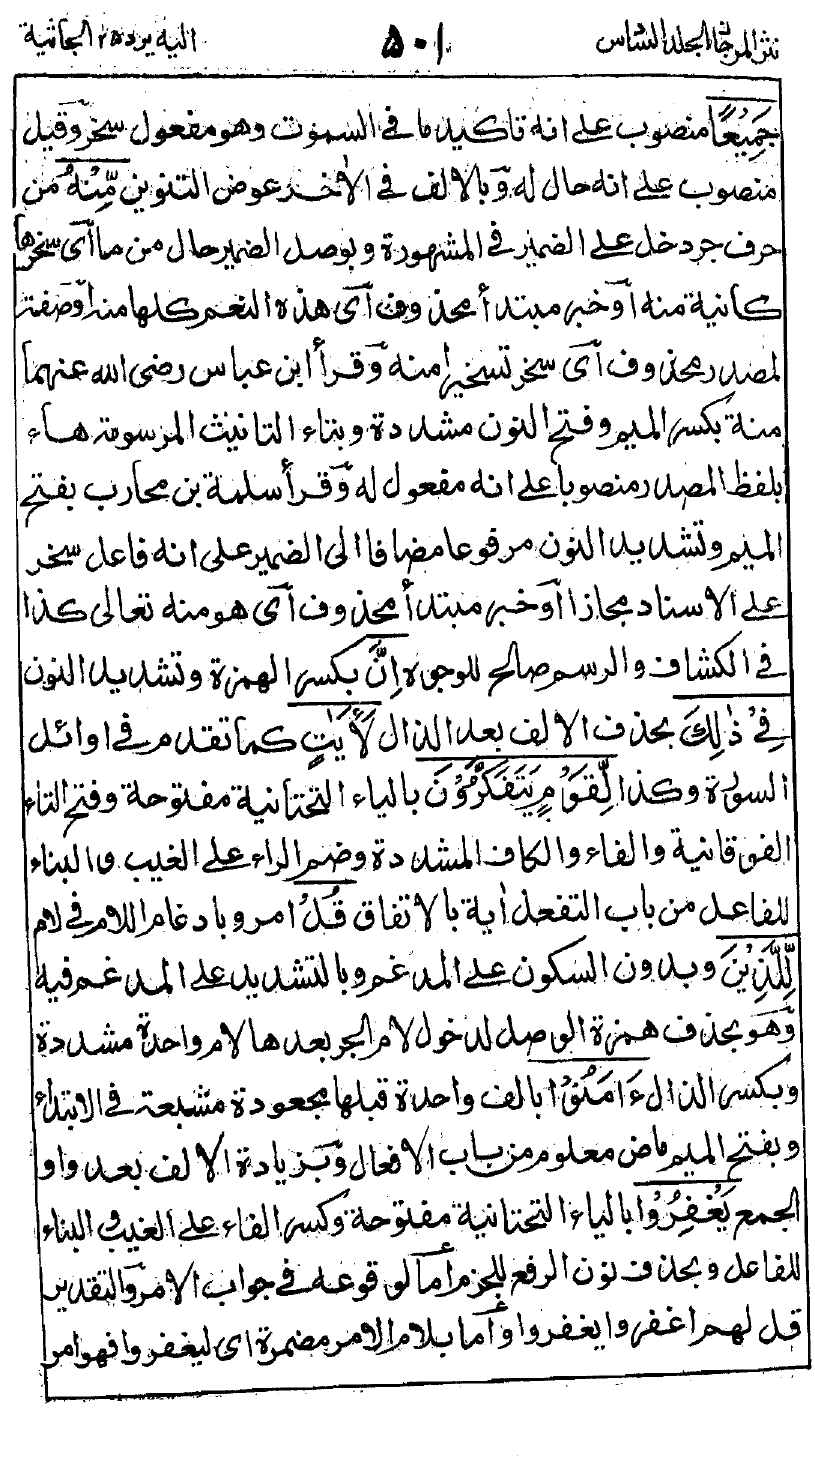 نثر المرجان المجلد السادس ٥٠١ اليه يرد ٢٥ الجاثية
جَمِيْعًا منصوب على انه تاكيد ما في السموت وهو مفعول سخر وقيل
منصوب على انه حال له وبالالف في الاٰخر عوض التنوين مِّنْهُ من
حرف جر دخل على الضمير في المشهورة وبوصل الضمير حال من ما اى سخرها
كانية منه او خبر مبتدأ محذوف اى هذه النعم كلها منه او صفة
لمصدر محذوف اى سخر تسخيرا منه وقرأ ابن عباس رضى الله عنهما
منة بكسر الميم وفتح النون مشددة وبتاء التانيث المرسومة هاء
بلفظ المصدر منصوبا على انه مفعول له وقرأ سلمة بن محارب بفتح
الميم وتشديد النون مرفوعا مضافا الى الضمير على انه فاعل سخر
على الاسناد مجازا او خبر مبتدأ محذوف اى هو منه تعالى كذا
في الكشاف والرسم صالح للوجوه اِنَّ بكسر الهمزة وتشديد النون
فِيْ ذٰلِكَ بحذف الالف بعد الذال لَاٰيٰتٍ كما تقدم في اوائل
السورة وكذا لِّقَوْمٍ يَتَفَكَّرُوْنَ بالياء التحتانية مفتوحة وفتح التاء
الفوقانية والفاء والكاف المشددة وضم الراء على الغيب والبناء
للفاعل من باب التفعل اٰية بالاتفاق قُلْ امر وبادغام اللام في لام
لِّلَّذِيْنَ وبدون السكون على المدغم وبالتشديد على المدغم فيه
وهو بحذف همزة الوصل لدخول لام الجر بعدها لام واحدة مشددة
وبكسر الذال ءَامَنُوْا بالف واحدة قبلها مجعودة مشبعة في الابتداء
وبفتح الميم ماض معلوم من باب الافعال وبزيادة الالف بعد واو
الجمع يَغْفِرُوْا بالياء التحتانية مفتوحة وكسر الفاء على الغيب والبناء
للفاعل وبحذف نون الرفع للجزم أما لوقوعه في جواب الامر والتقدير
قل لهم اغفروا يغفروا وأما بلام الامر مضمرة اى ليغفروا فهو امر